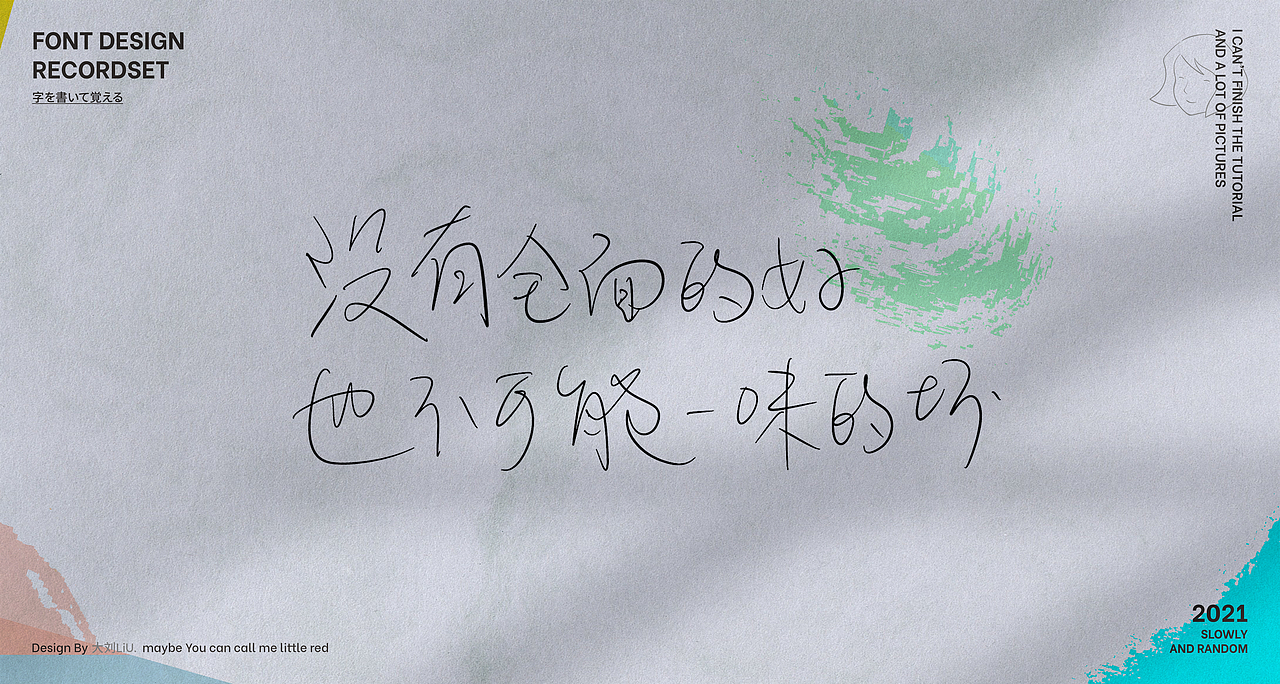 FONT DESIGN
RECORDSET
字を書いて覚える
I CAN'T FINISH THE TUTORIAL
AND A LOT OF PICTURES
没有全面的好
也不可能一味的坏
Design By 大刘LiU. maybe You can call me little red
2021
SLOWLY
AND RANDOM